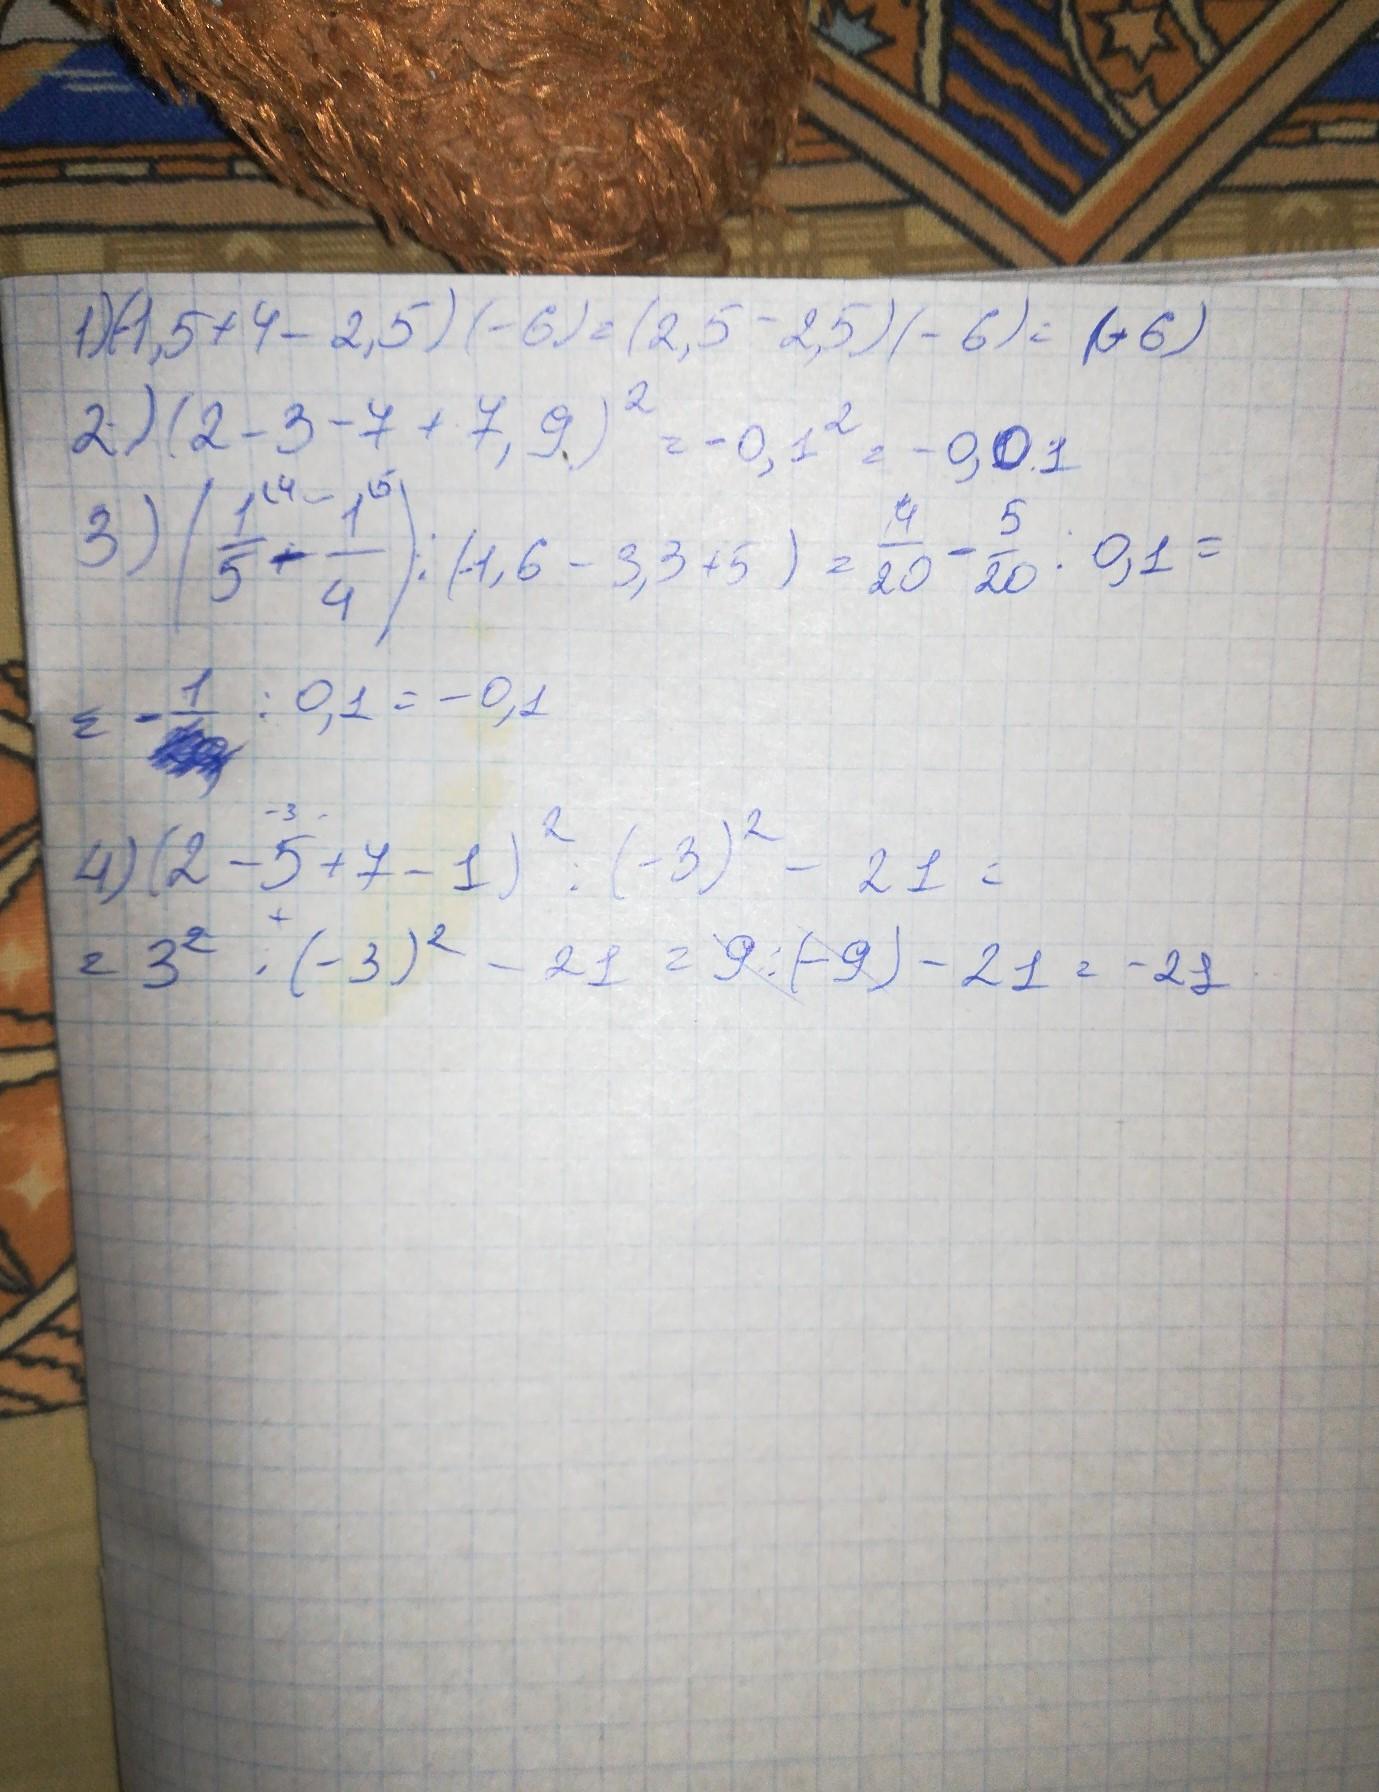 1)(-1,5+4-2,5)(-6)=(2,5-2,5)(-6)= (-6)
2)(2-3-7+7,9)²=-0,1²=-0,01
3)(1/5⁽⁴-1/4⁽⁵):(-1,6-3,3+5)=4/20-5/20:0,1=
=-1/ :0,1=-0,1
-3
4)(2-5+7-1)²:(-3)²-21=
+
=3²:(-3)²-21=9:(-9)-21=-21